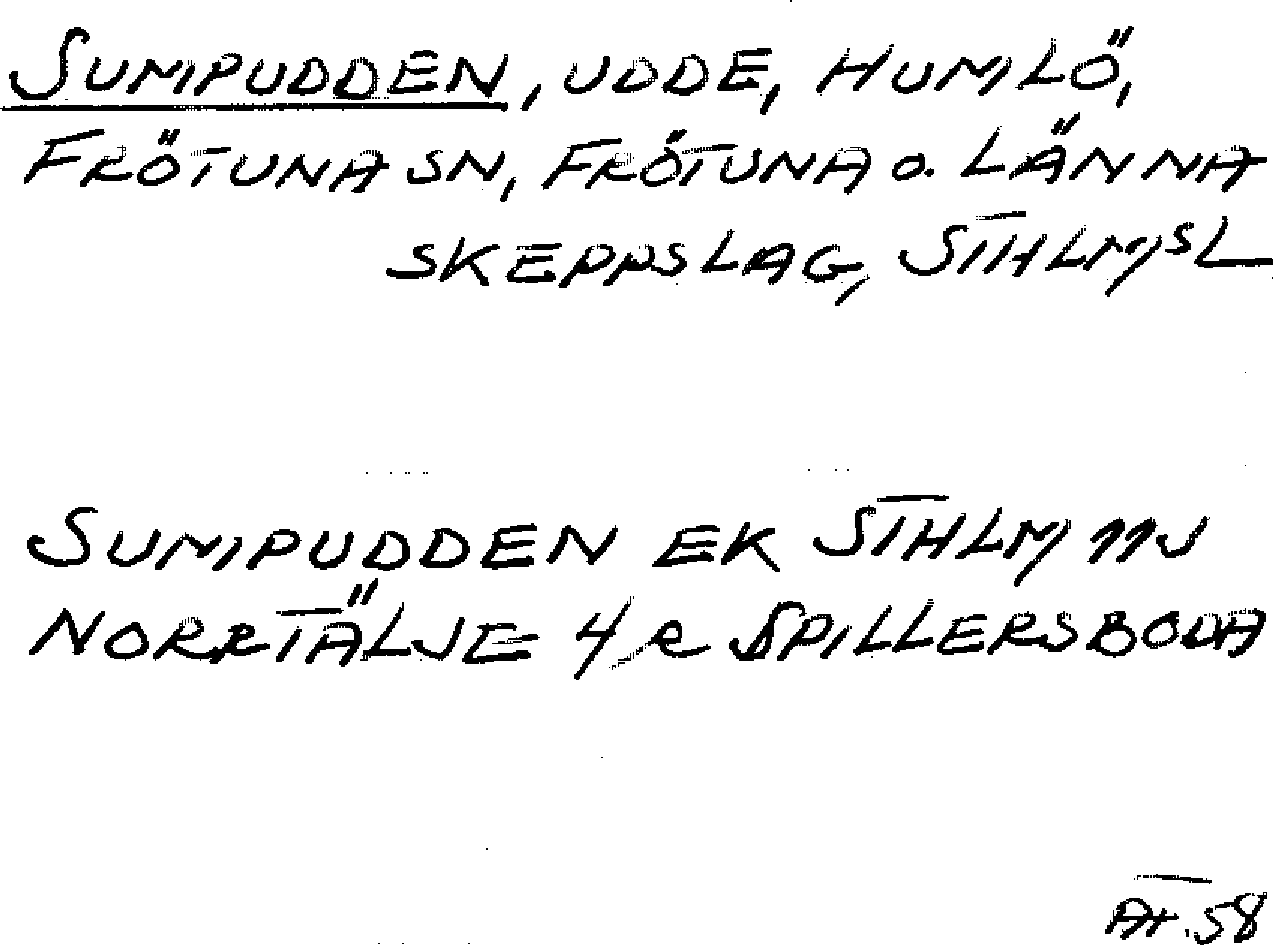 SUMPUDDEN, UDDE, HUMLÖ,
FRÖTUNA SN, FRÖTUNA O. LÄNNA
SKEPPSLAG, STHLMS L
SUMPUDDEN EK STHLM 11J
NORRTÄLJE 4 e SPILLERSBODA
At. 58